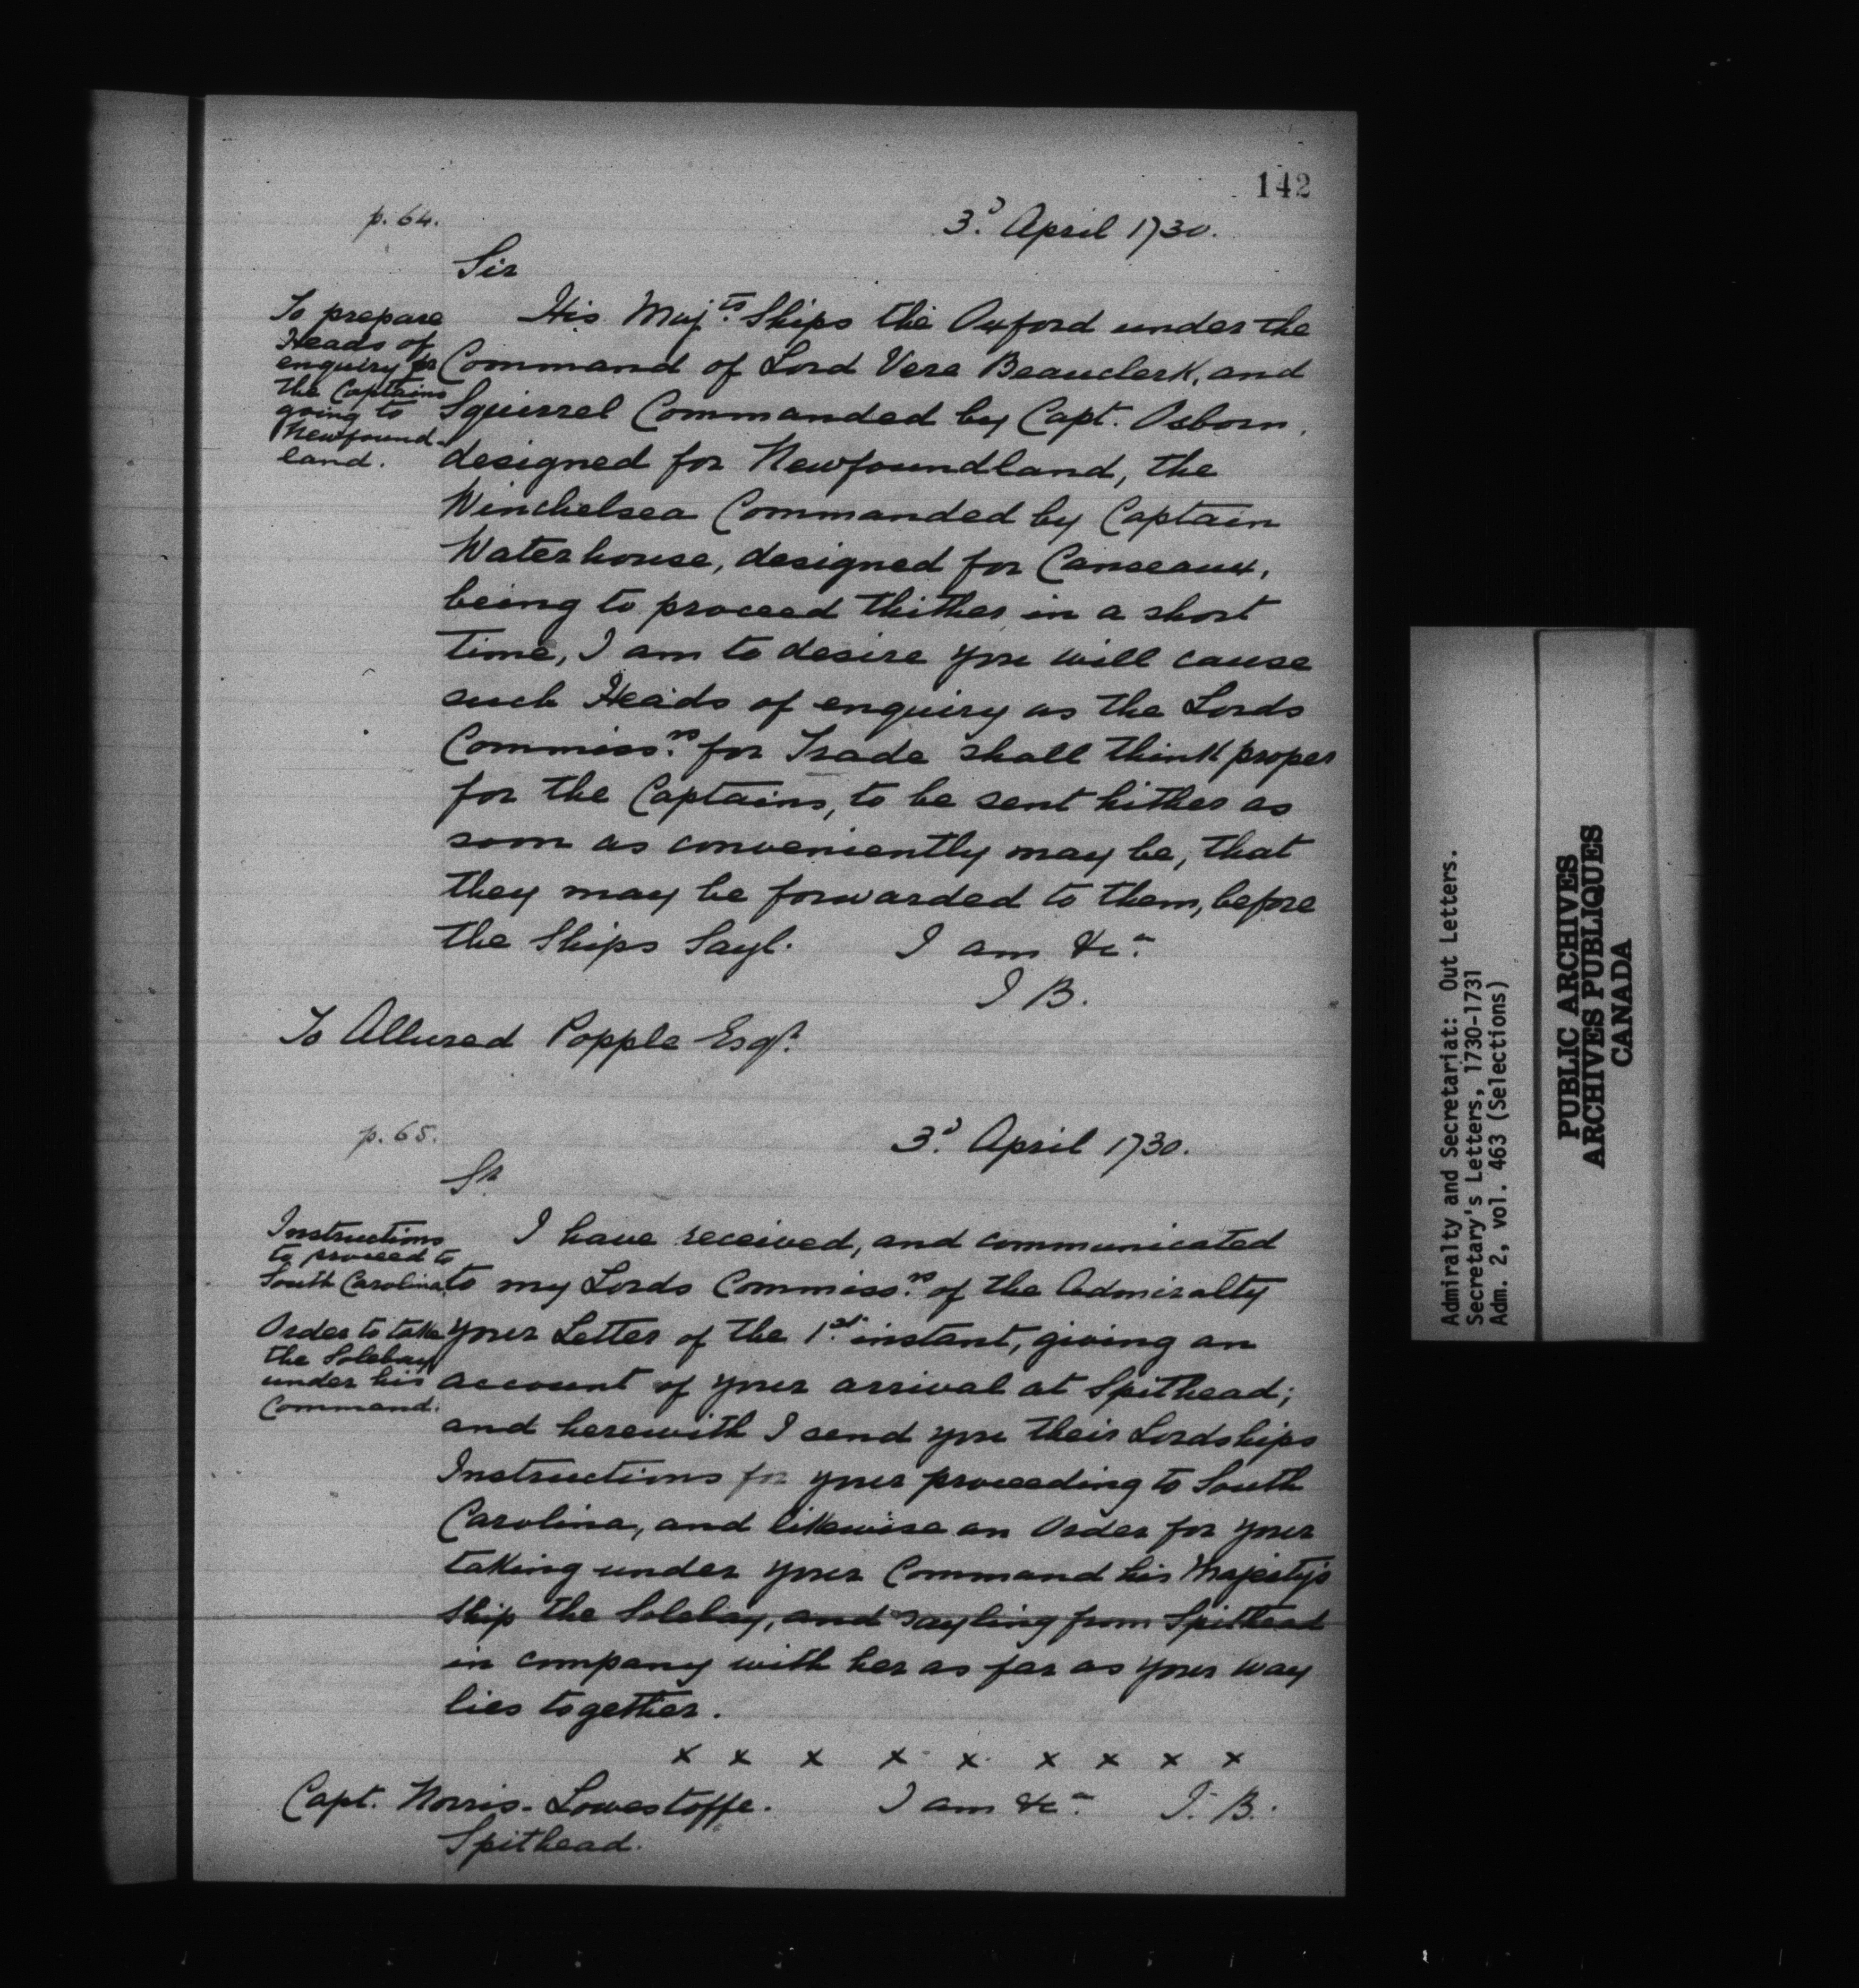 142
p. 64.
3.d April 1730.
Sir
To prepare
Heads of
enquiry for
the Captains
going to
Newfound-
land.
His Maj.ts Ships the Oxford under the
Command of Lord Vere Beauclerk, and
Squirrel Commanded by Capt. Osborn,
designed for Newfoundland, the
Winchelsea Commanded by Captain
Waterhouse, designed for Canseaux,
being to proceed thither in a short
time, I am to desire you will cause
such Heads of enquiry as the Lords
Commiss.rs for Trade shall think proper
for the Captains, to be sent hither as
soon as conveniently may be, that
they may be forwarded to them, before
the Ships Sayl. I am &c.a
J B.
To Allured Popple Esq.r
p. 65.
3.d April 1730.
S.r
Instructions
to proceed to
South Carolina
Order to take
the Solebay
under his
Command.
I have received, and communicated
to my Lords Commiss.rs of the Admiralty
your Letter of the 1.st instant, giving an
account of your arrival at Spithead;
and herewith I send you their Lordships
Instructions for your proceeding to South
Carolina, and likewise an Order for your
taking under your Command his Majesty's
Ship the Solebay, and sayling from Spithead
in company with her as far as your way
lies together.
x x x x x x x x x
Capt. Norris - Lowestoffe. I am &c.a J. B.
Spithead.
Admiralty and Secretariat: Out Letters.
Secretary's Letters, 1730-1731
Adm. 2, vol. 463 (Selections)
PUBLIC ARCHIVES
ARCHIVES PUBLIQUES
CANADA